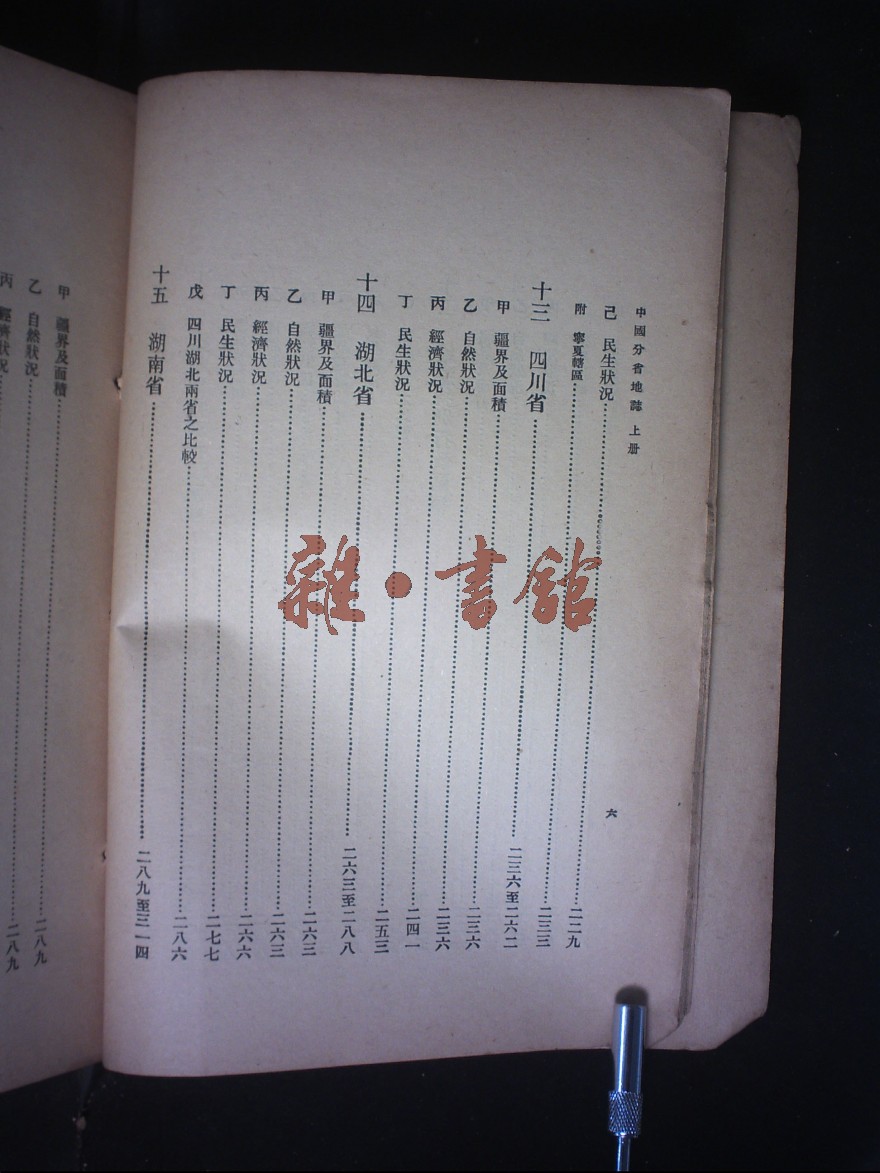 中國分省地誌 上册 六
己 民生狀況……二二九
附 寧夏轄區……二三三
十三 四川省……二三六至二六二
甲 疆界及面積……二三六
乙 自然狀況……二三六
丙 經濟狀況……二四一
丁 民生狀況……二五三
十四 湖北省……二六三至二八八
甲 疆界及面積……二六三
乙 自然狀況……二六三
丙 經濟狀況……二六六
丁 民生狀況……二七七
戊 四川湖北兩省之比較……二八六
十五 湖南省……二八九至三一四
甲 疆界及面積……二八九
乙 自然狀況……二八九
丙 經濟狀況
雜·書館